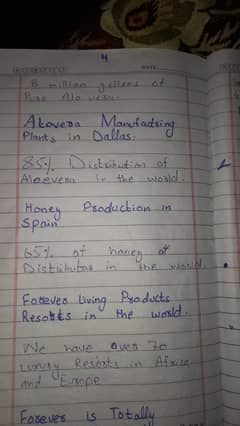 4
DATE
8 million gellens of
Pure Alo vera.
Alovera Manufactring
Plants in Dallas.
85% Distribution of
Aloevera in the world.
Honey Production in
Spain
65% of honey of
Distributes in the world.
Forever Living Products
Resorts in the world.
We have over 70
luxury Resorts in Africa
and Erope
Forever is Totally